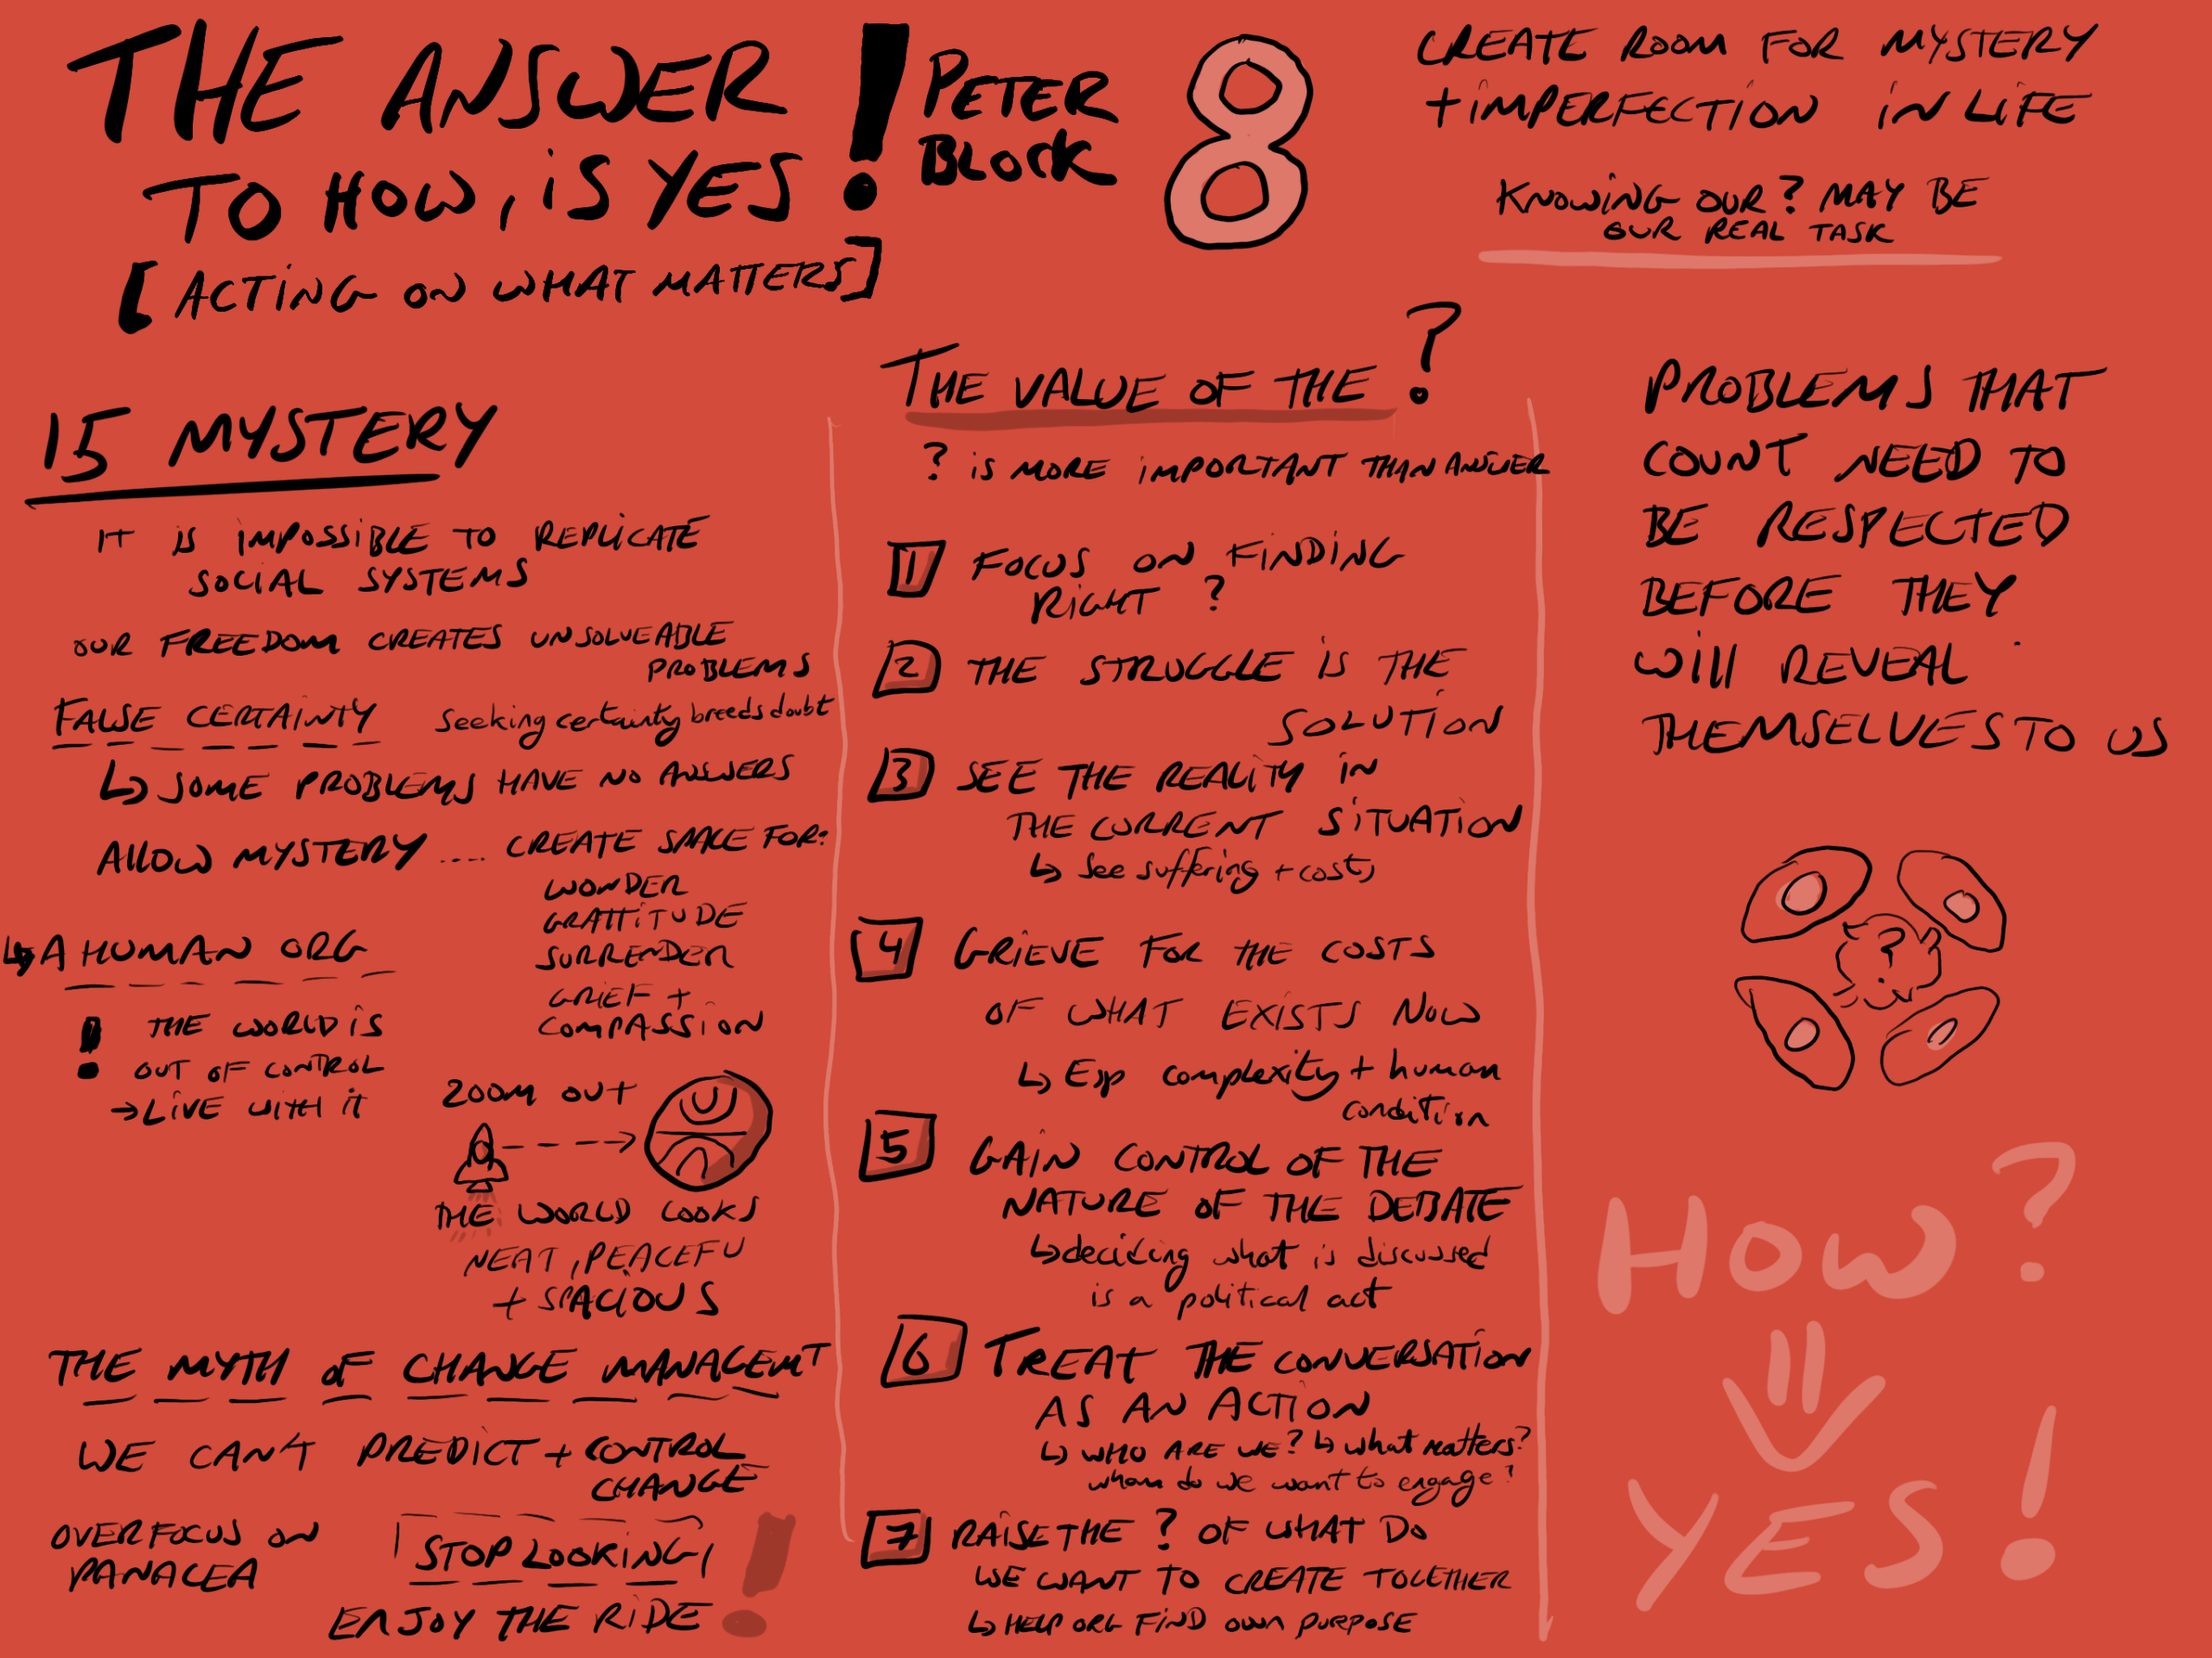 THE ANSWER
TO HOW, iS YES!
[ACTiNG ON WHAT MATTERS]
PETER
BLOCK
8
CREATE ROOM FOR MYSTERY
+ iMPERFECTiON iN LiFE
KNOWiNG OUR ? MAY BE
OUR REAL TASK
15 MYSTERY
IT iS iMPOSSiBLE TO REPLiCATE
SOCiAL SYSTEMS
OUR FREEDOM CREATES UNSOLVEABLE
PROBLEMS
FALSE CERTAiNTY seeking certainty breeds doubt
↳ SOME PROBLEMS HAVE NO ANSWERS
ALLOW MYSTERY .... CREATE SPACE FOR:
WONDER
GRATTiTUDE
SURRENDER
GRiEF +
COMPASSiON
↳ A HUMAN ORG
! THE WORLD iS
OUT OF CONTROL
→ LiVE WiTH iT
ZOOM OUT
THE WORLD LOOKS
NEAT, PEACEFU
+ SPACiOUS
THE MYTH OF CHANGE MANAGEMT
WE CAN'T PREDiCT + CONTROL
CHANGE
OVERFOCUS ON
PANACEA
STOP LOOKiNG,
ENJOY THE RiDE !
THE VALUE OF THE ?
? iS MORE iMPORTANT THAN ANSWER
1 FOCUS ON FiNDiNG
RiGHT ?
2 THE STRUGGLE iS THE
SOLUTiON
3 SEE THE REALiTY iN
THE CURRENT SiTUATiON
↳ See suffering + costs
4 GRiEVE FOR THE COSTS
OF WHAT EXiSTS NOW
↳ Esp complexity + human
condition
5 GAiN CONTROL OF THE
NATURE OF THE DEBATE
↳ deciding what is discussed
is a political act
6 TREAT THE CONVERSATiON
AS AN ACTiON
↳ WHO ARE WE? ↳ what matters?
whom do we want to engage?
7 RAiSE THE ? OF WHAT DO
WE WANT TO CREATE TOGETHER
↳ HELP ORG FiND OWN PURPOSE
PROBLEMS THAT
COUNT NEED TO
BE RESPECTED
BEFORE THEY
WiLL REVEAL
THEMSELVES TO US
?
HOW?
YES!